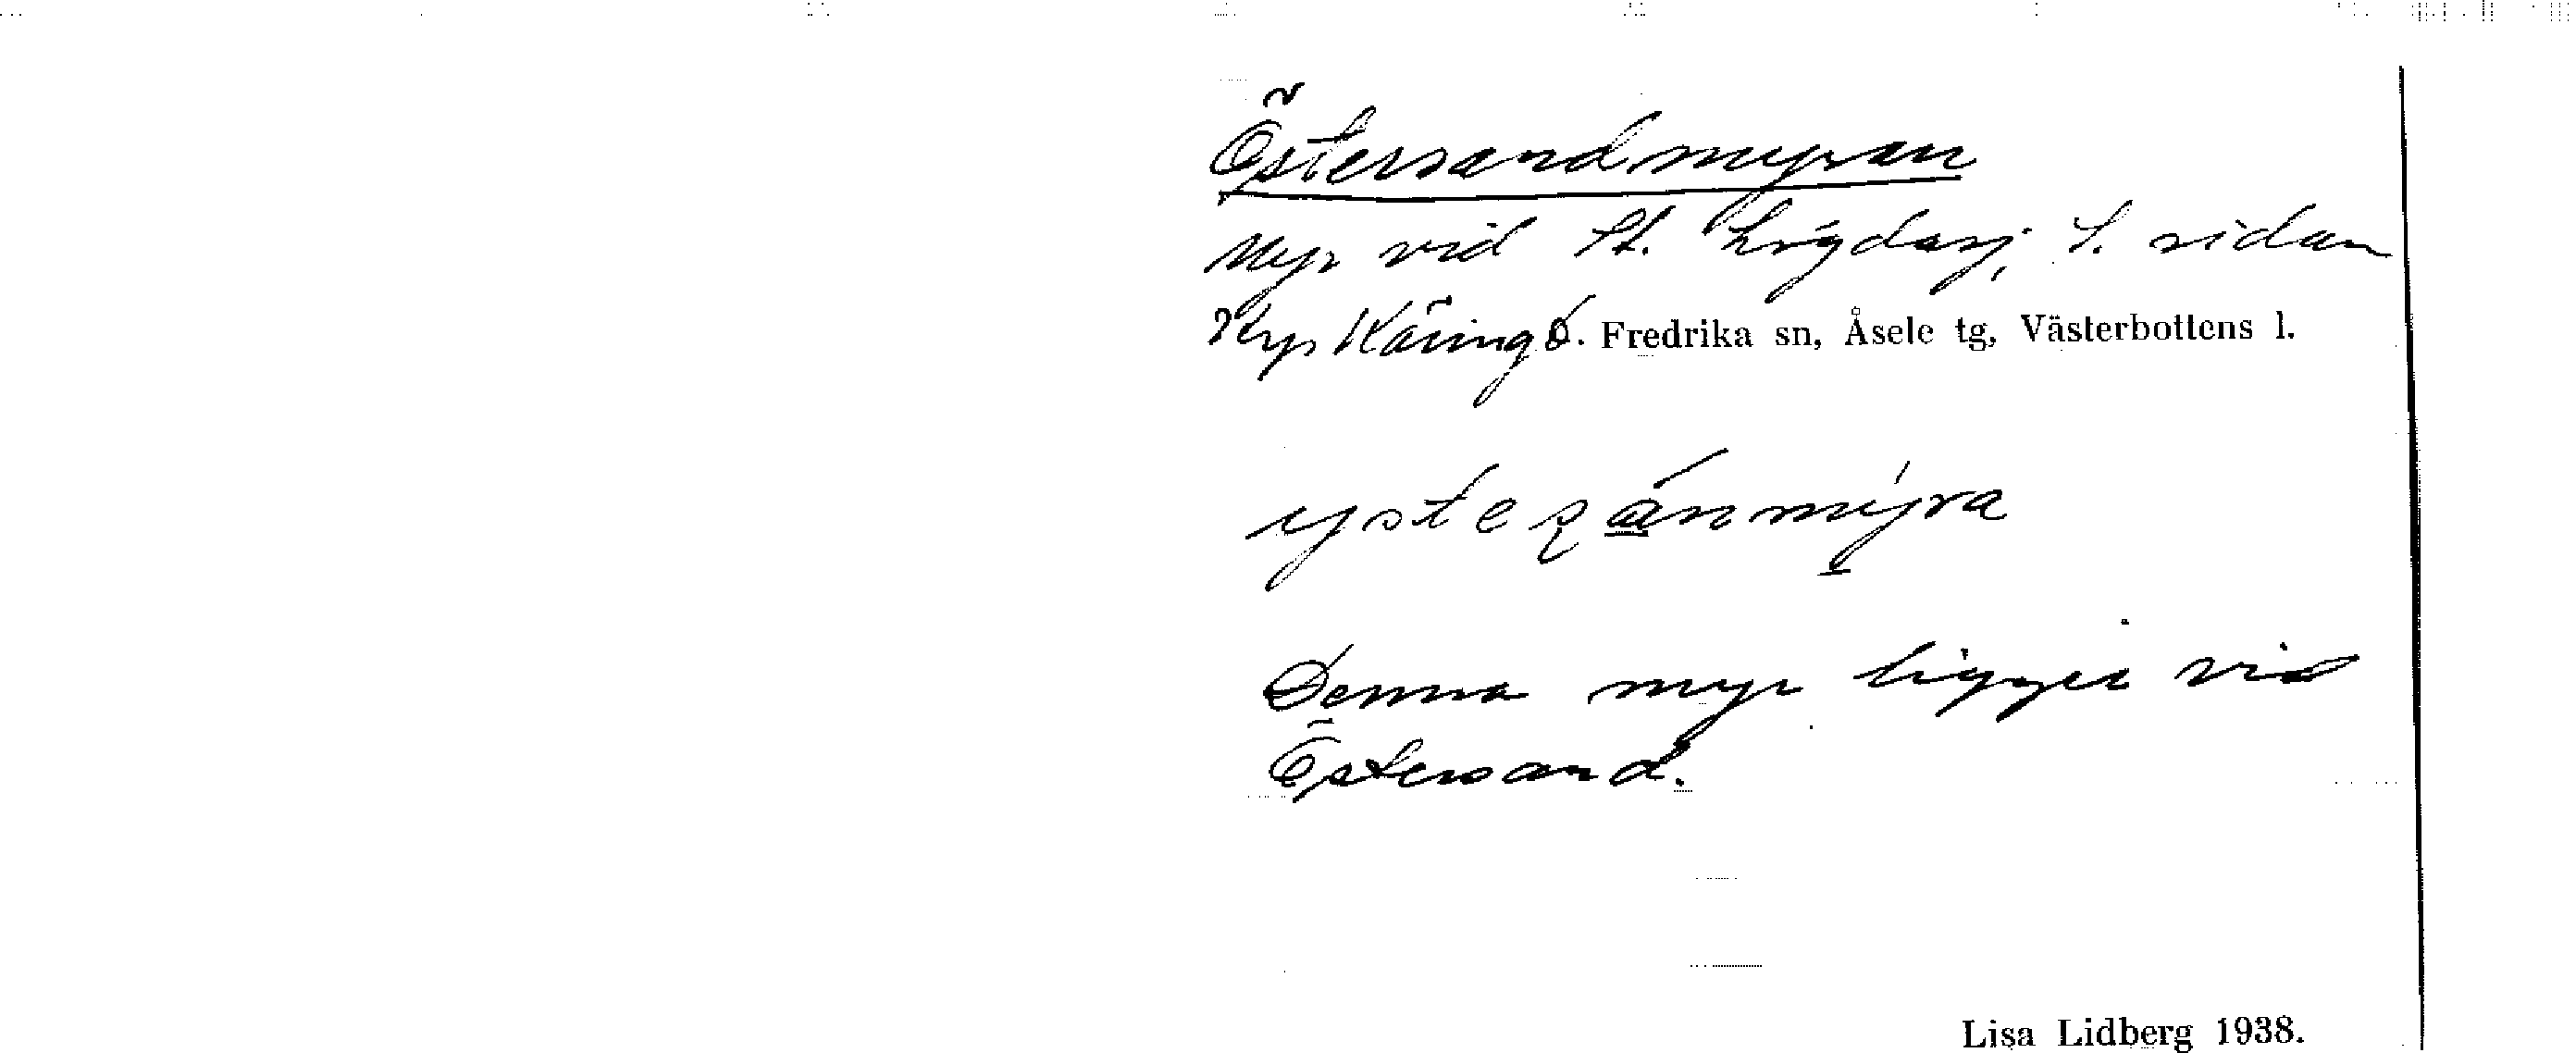 Östersandmyran
Myr vid St. Lögdasj, S. sidan
Käringb. Fredrika sn, Åsele tg, Västerbottens l.
Denna myr ligger vid
Östersand.
Lisa Lidberg 1938.